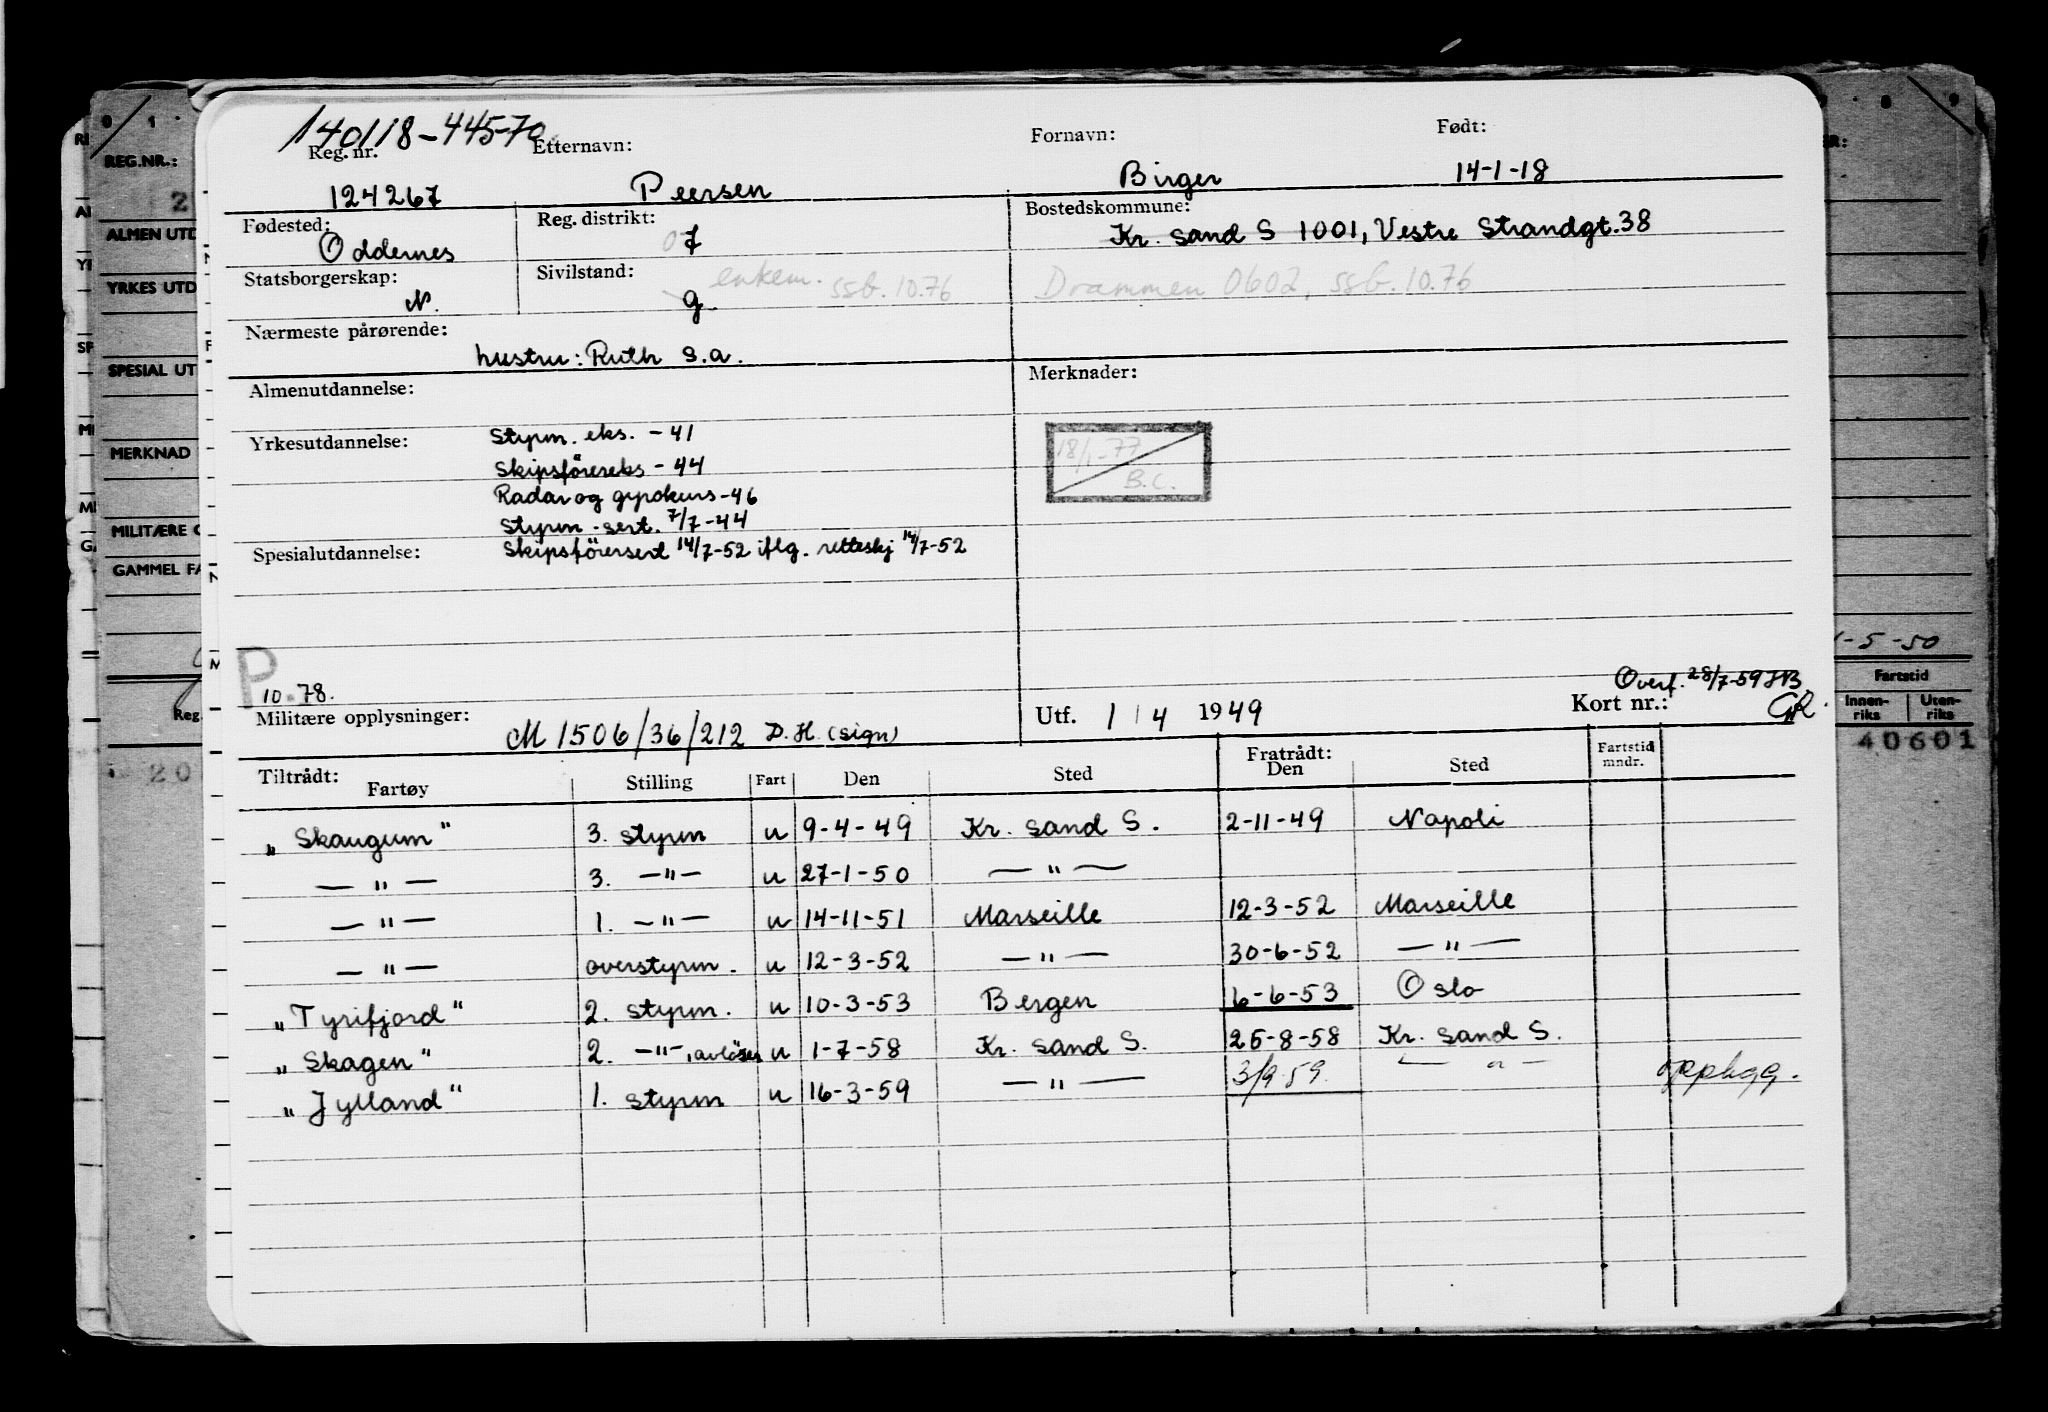 140118-44570
Reg. nr. Etternavn: Fornavn: Født:
124267 Peersen Birger 14-1-18
Fødested: Reg. distrikt: Bostedskommune:
Oddernes 07 Kr. Sand S 1001, Vestre Strandgt. 38
Statsborgerskap: Sivilstand: enkem. ssb. 10.76 Drammen 0602, ssb. 10.76
N. g
Nærmeste pårørende:
hustru: Ruth s.a.
Almenutdannelse: Merknader:
Yrkesutdannelse: Styrm. eks. - 41
18/1-77
Skipsförereks - 44
B.C.
Radar og gyrokurs - 46
Styrm. sert. 7/7-44
Spesialutdannelse: Skipsförersert 14/7-52 iflg. retteskj 14/7-52
P
10.78.
Overf. 28/7-59 JB
Militære opplysninger: Utf. 1/4 1949 Kort nr.: GR.
M 1506/36/212 D.H. (sign)
Tiltrådt: Fratrådt:
Fartøy Stilling Fart Den Sted Den Sted Fartstid mndr.
"Skaugum" 3. styrm u 9-4-49 Kr. Sand S. 2-11-49 Napoli
— " — 3. — " — u 27-1-50 — " —
— " — 1. — " — u 14-11-51 Marseille 12-3-52 Marseille
— " — overstyrm. u 12-3-52 — " — 30-6-52 — " —
"Tyrifjord" 2. styrm. u 10-3-53 Bergen 6-6-53 Oslo
"Skagen" 2. — " —, avløser u 1-7-58 Kr. Sand S. 25-8-58 Kr. Sand S.
"Jylland" 1. styrm u 16-3-59 — " — 3/9-59. — " — opphugg.
REG.NR.:
2
ALMEN UTD
YRKES UTD
SPESIAL UT
MERKNAD
MILITÆRE
GAMMEL FA
Reg.
20
1-5-50
Fartstid
Innen-riks Uten-riks
40601